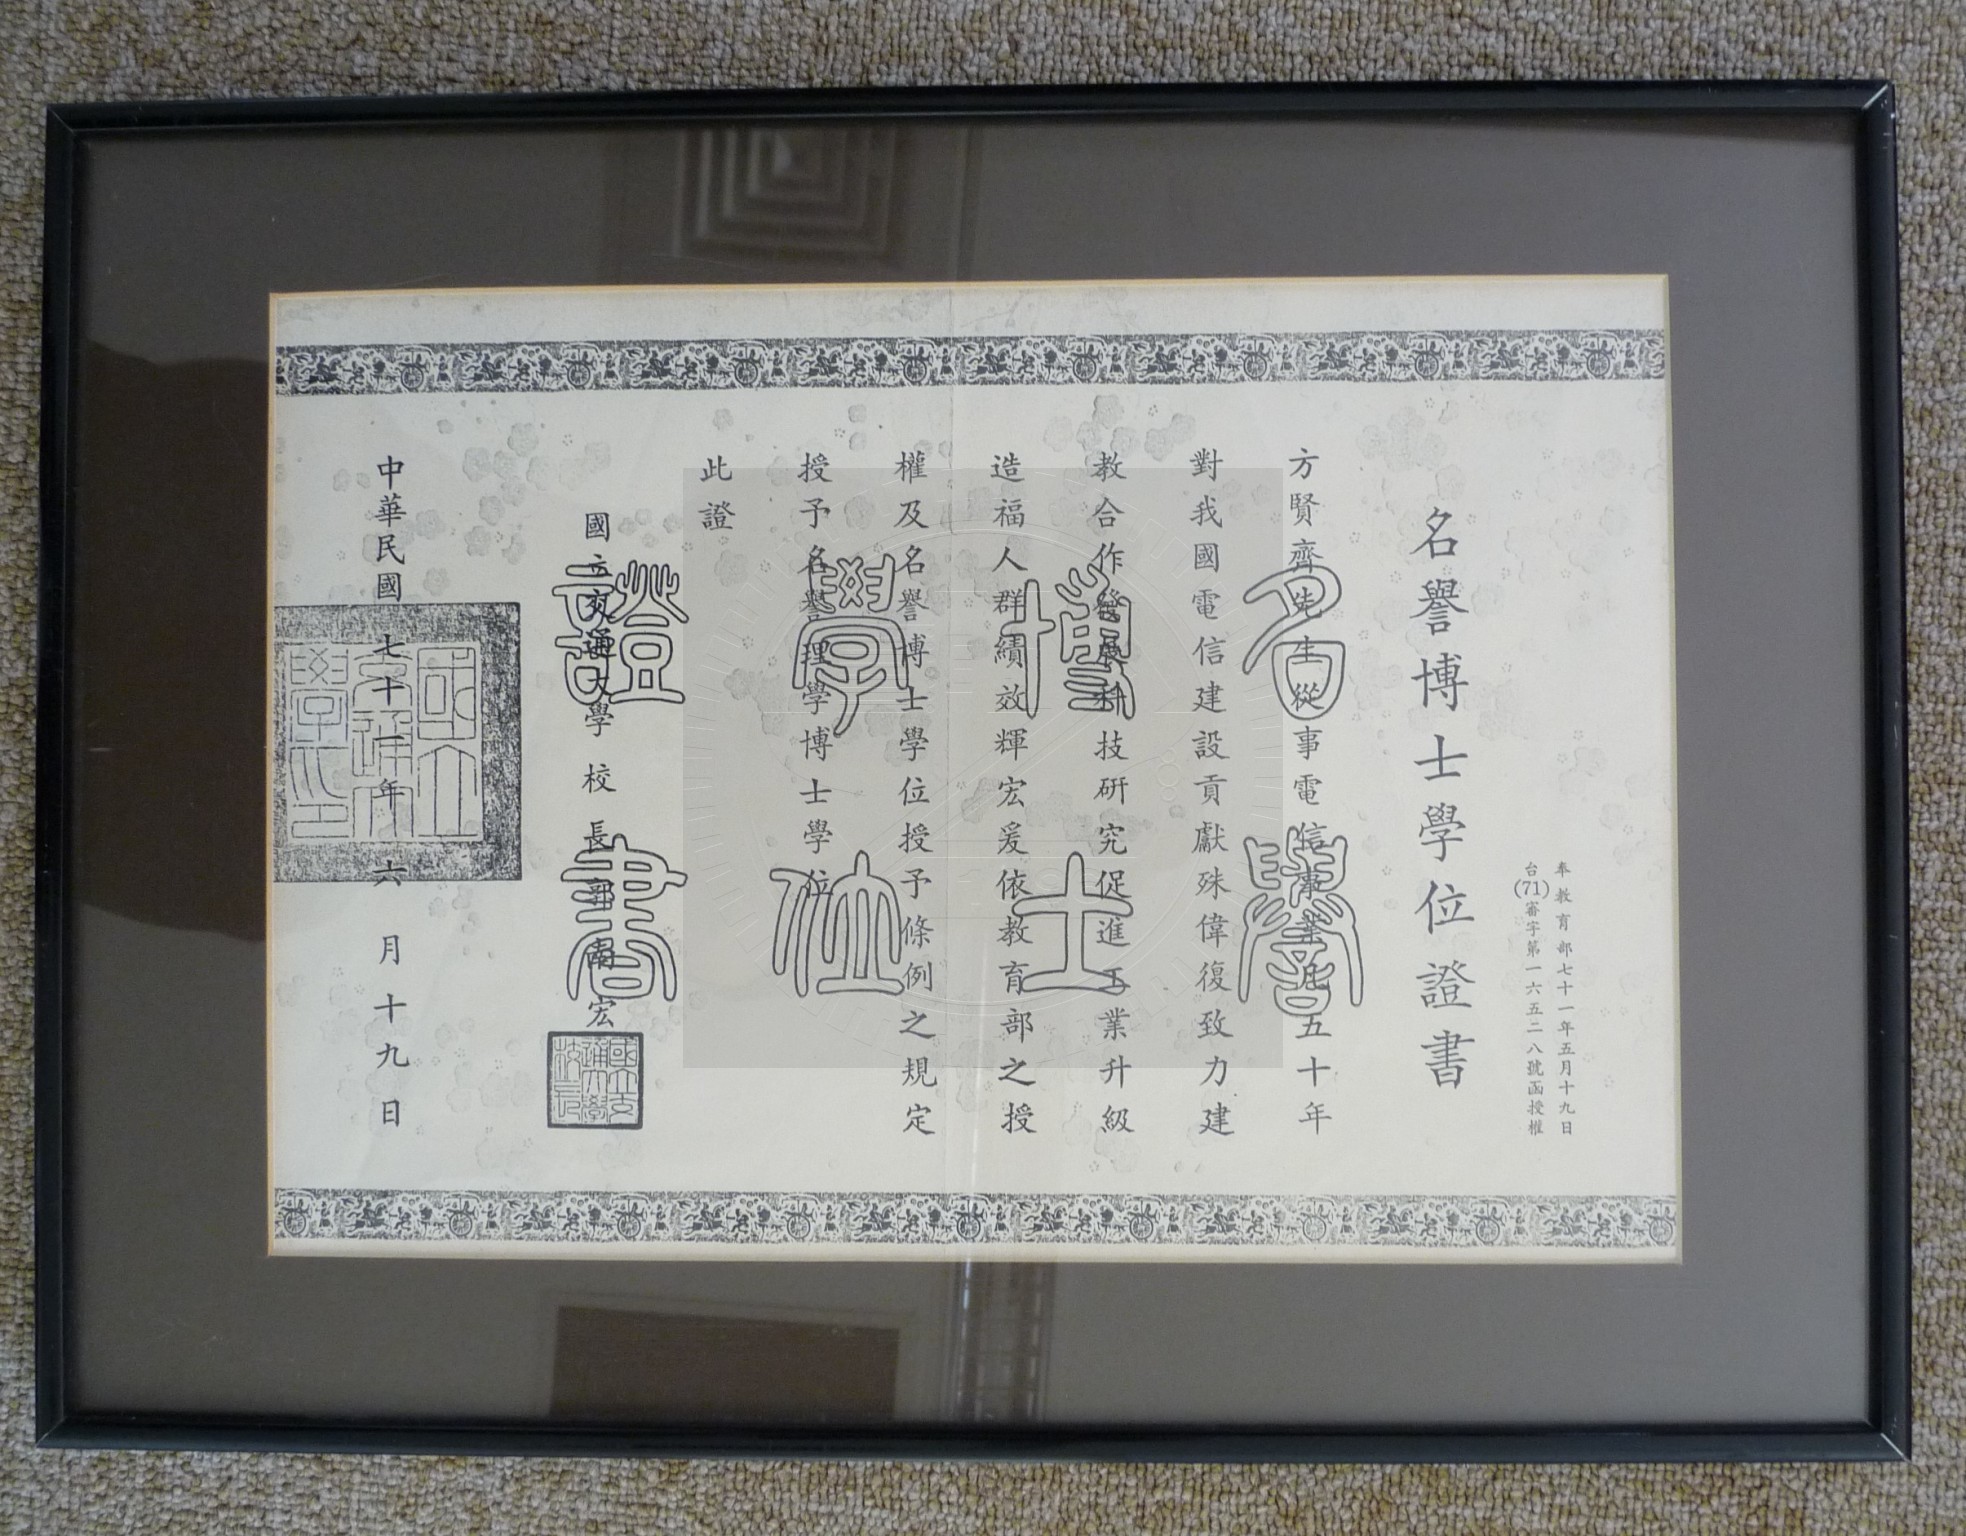 奉教育部七十一年五月十九日
台(71)審字第一六五二八號函授權
名譽博士學位證書
方賢齊先生從事電信事業凡五十年
對我國電信建設貢獻殊偉復致力建
教合作發展科技研究促進工業升級
造福人群績效輝宏爰依教育部之授
權及名譽博士學位授予條例之規定
授予名譽理學博士學位
此證
國立交通大學校長郭南宏
國立交通大學校長
中華民國七十一年六月十九日
國立交通大學印
名譽博士學位證書